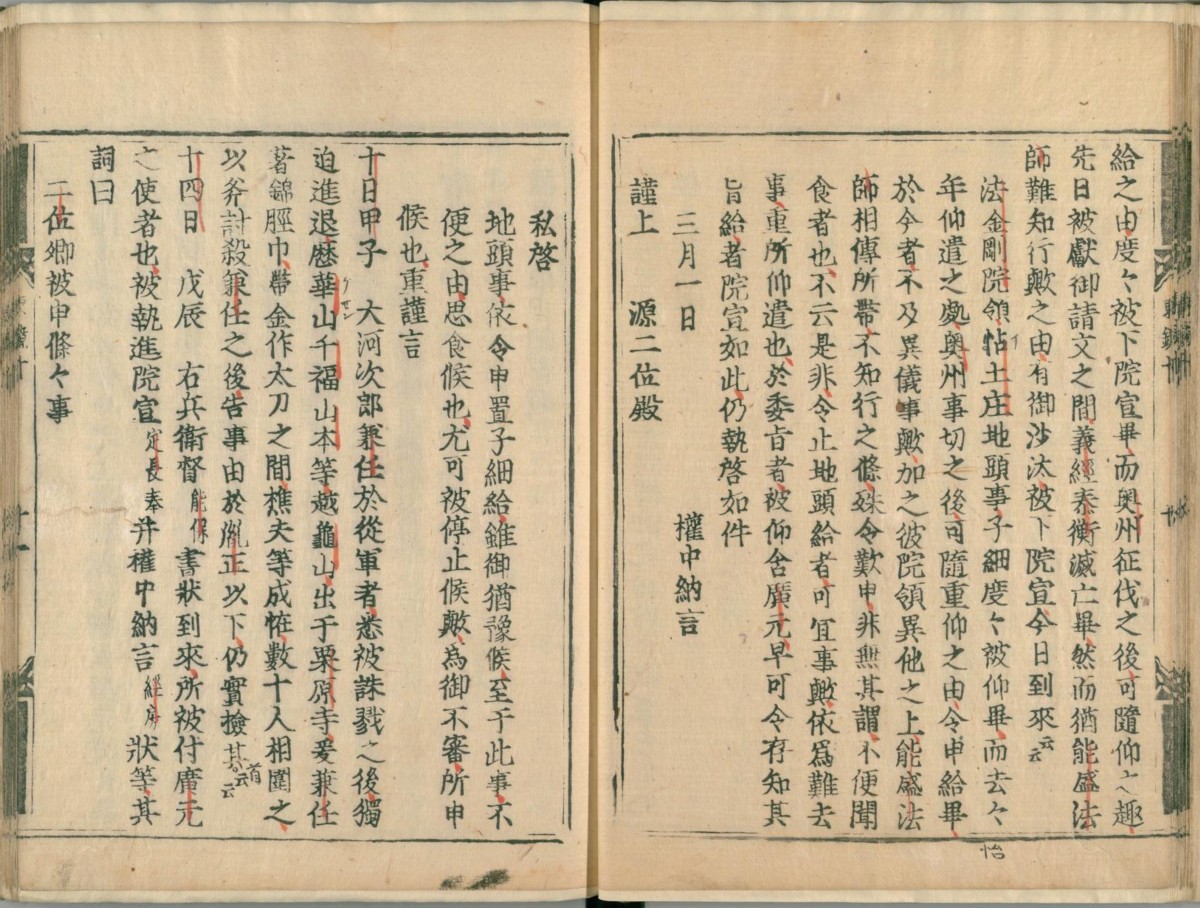 給之由度々被下院宣畢而奥州征伐之後可隨仰之趣
先日被獻御請文之間義經泰衡滅亡畢然而猶能盛法
師難知行歟之由有御沙汰被下院宣今日到來云云
法金剛院領怗土庄地頭事子細度々被仰畢而去々
年仰遣之處奥州事切之後可隨重仰之由令申給畢
於今者不及異儀事歟加之彼院領異他之上能盛法
師相傳所帶不知行之條殊令歎申非無其謂不便聞
食者也不云是非令止地頭給者可冝事歟依爲難去
事重所仰遣也於委旨者被仰含廣元早可令存知其
旨給者院宣如此仍執啓如件
三月一日　權中納言
謹上　源二位殿
怡
私啓
地頭事依令申置子細給雖御猶豫候至于此事不
便之由思食候也尤可被停止候歟為御不審所申
候也重謹言
十日甲子　大河次郎兼任於從軍者悉被誅戮之後獨
迫進退歷華山千福山本等越龜山出于栗原寺爰兼任
著錦脛巾帶金作太刀之間樵夫等成恠數十人相圍之
以斧討殺兼任之後告事由於胤正以下仍實撿其首云云
十四日　戊辰　右兵衛督能保書狀到來所被付廣元
之使者也被執進院宣定長奉并權中納言經房狀等其
詞曰
二位卿被申條々事